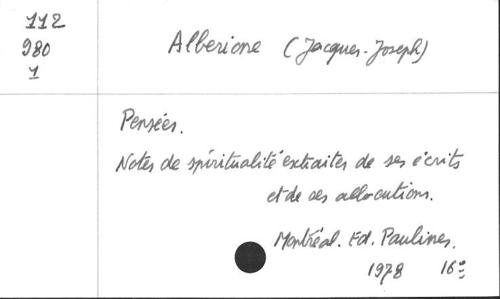 112
980
1
Alberione (Jacques-Joseph)
Pensées.
Notes de spiritualité extraites de ses écrits
et de ses allocutions.
Montréal. Ed. Paulines.
1978 16°